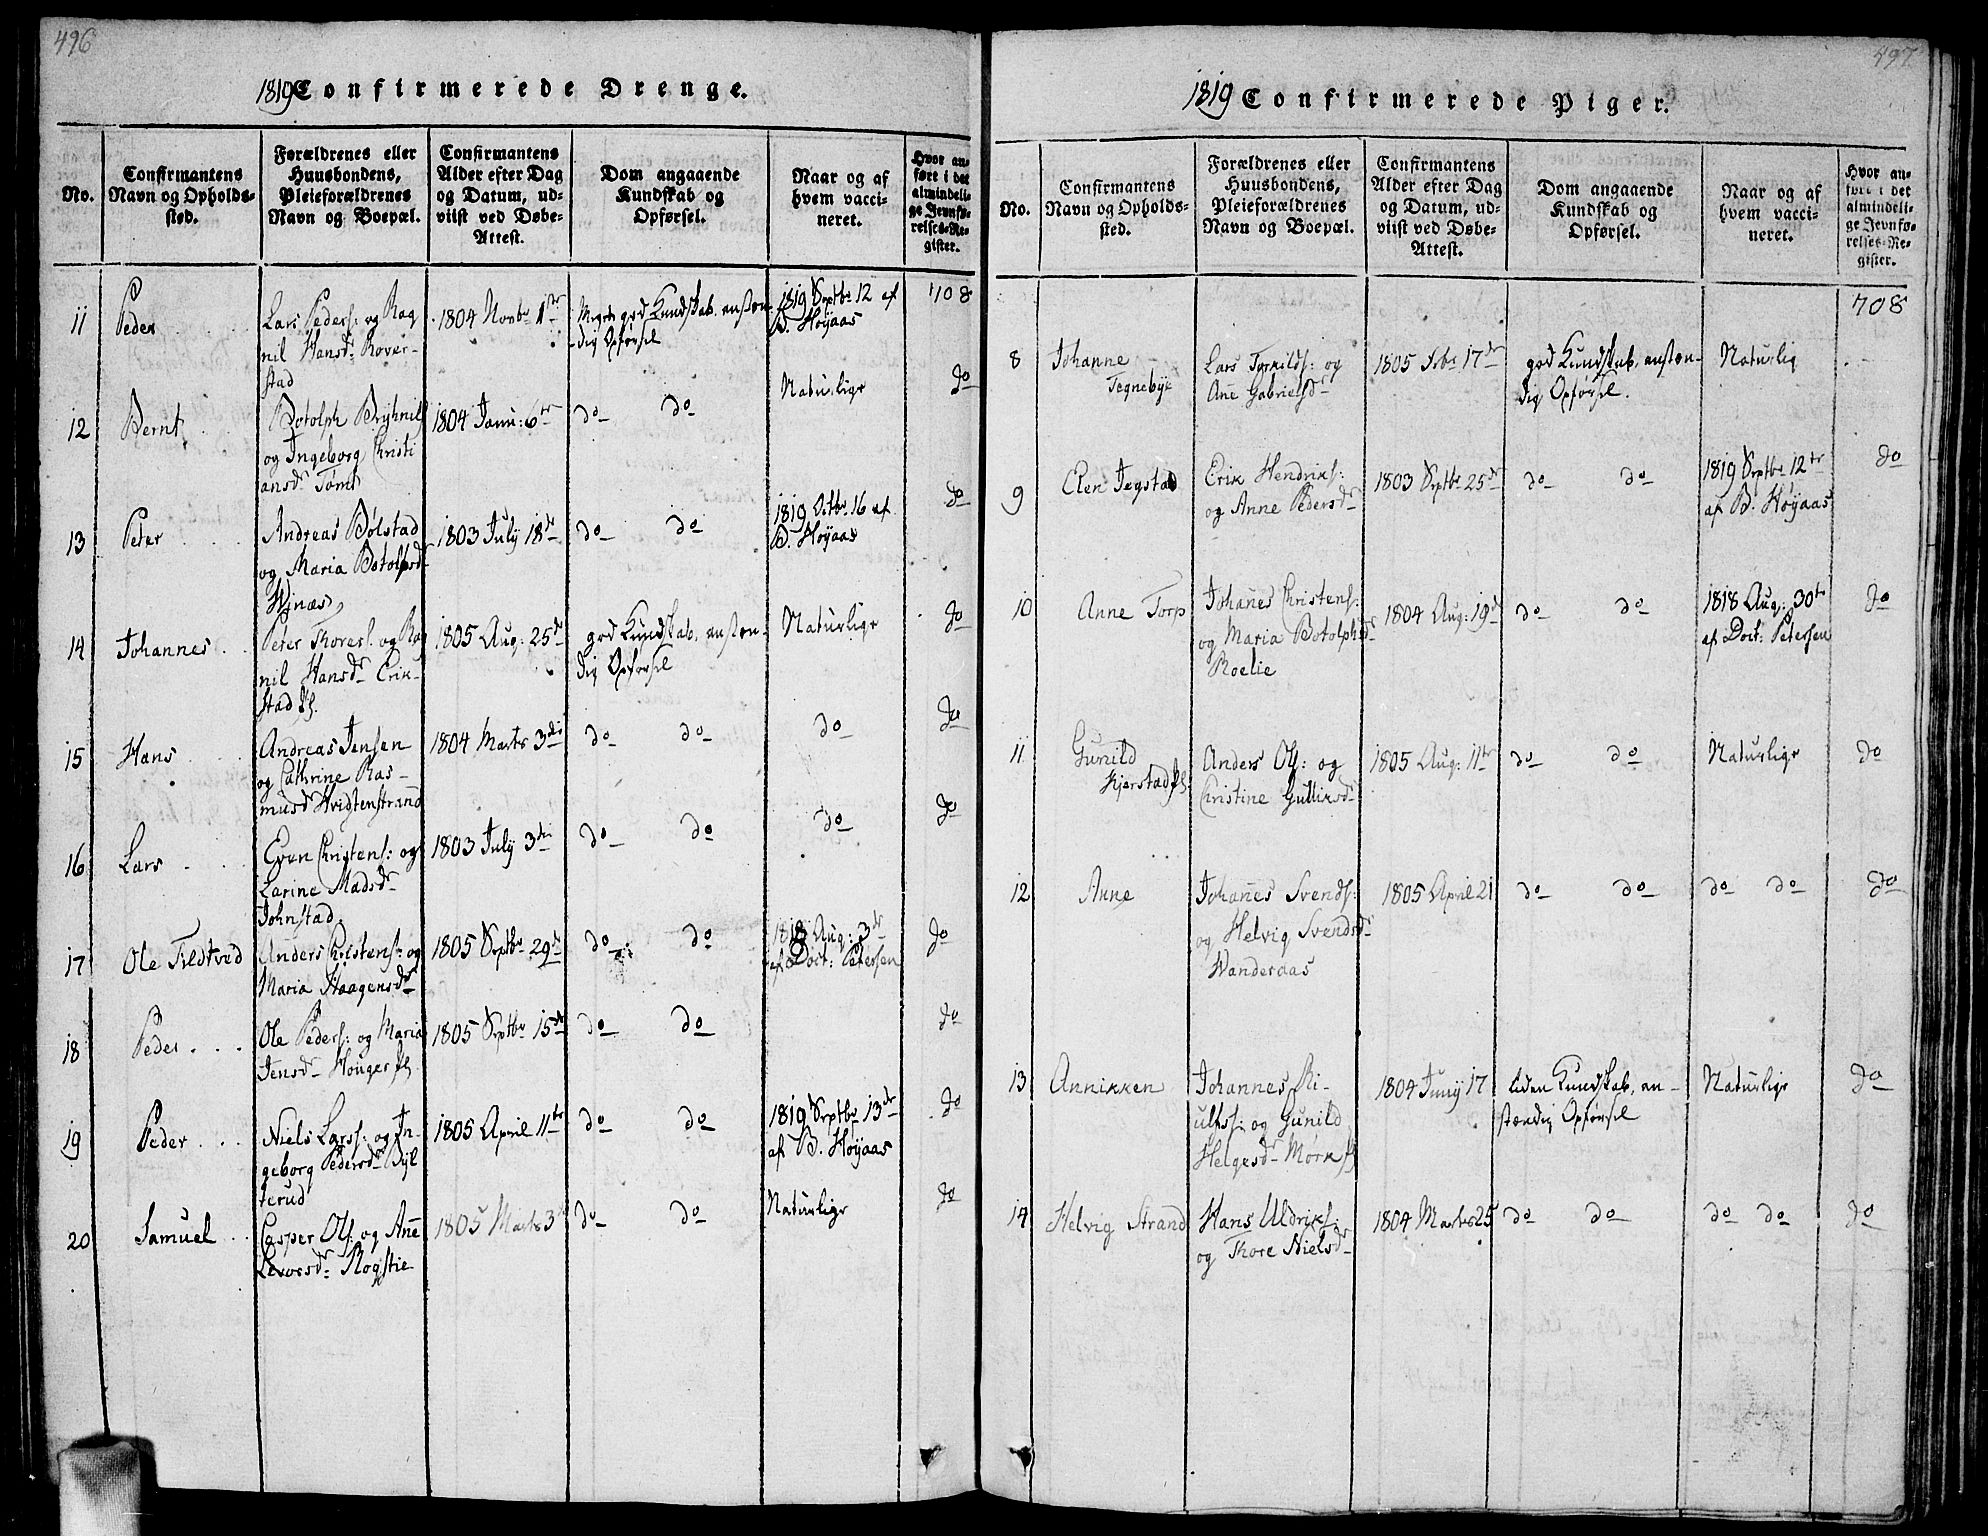 496
1819 Confirmerede Drenge.
No.
Confirmantens
Navn og Opholds-
sted.
Forældrenes eller
Huusbondens,
Pleieforældrenes
Navn og Boepæl.
Confirmantens
Alder efter Dag
og Datum, ud-
viist ved Døbe-
Attest.
Dom angaaende
Kundskab og
Opførsel.
Naar og af
hvem vacci-
neret.
Hvor an-
ført i det
almindeli-
ge Jevnfø-
relses-Re-
gister.
11
Peder
Lars Peders: og Rag
nil Hansd: Rover-
stad
1804 Novbr 1ste
Meget god Kundskab, anstæn-
dig Opførsel
1819 Septbr 12 af
B. Høyaas
708
12
Bernt
Botolph Bryhnils
og Ingeborg Christi
ansdr Tømt
1804 Janu: 6te
do do
Naturlige
do
13
Peter
Andreas Bølstad
og Maria Botolphsd
Winæs
1803 July 18de
do do
1819 Octbr 16 af
B. Høyaas
do
14
Johannes
Peter Thores: og Rag
nil Hansdr Erik-
stad
1805 Aug: 25de
god Kundskab, anstæn-
dig Opførsel
Naturlige
do
15
Hans
Andreas Jensen
og Cathrine Ras-
musdr Hvidtenstrand
1804 Marts 3die
do do
do
do
16
Lars
Even Christens: og
Larine Madsdr
Johnstad
1803 July 3die
do do
do
do
17
Ole Tvedtved
Anders Christens: og
Maria Haagensdr
1805 Septbr 29de
do do
1818 Aug: 3de
af Doct: Petersen
do
18
Peder
Ole Peders: og Maria
Jensdr Houger
1805 Septbr 15de
do do
do
19
Peder
Niels Larss: og In-
geborg Pedersdr Byl
terud
1805 April 11te
do do
1819 Septbr 13de
af B. Høyaas
do
20
Samuel
Casper Ols: og Ane
Larsdr: Rogstie
1805 Marts 3de
do do
Naturlige
do
497
1819 Confirmerede Piger.
No.
Confirmantens
Navn og Opholds-
sted.
Forældrenes eller
Huusbondens,
Pleieforældrenes
Navn og Boepæl.
Confirmantens
Alder efter Dag
og Datum, ud-
viist ved Døbe-
Attest.
Dom angaaende
Kundskab og
Opførsel.
Naar og af
hvem vacci-
neret.
Hvor an-
ført i det
almindeli-
ge Jevnfø-
relses-Re-
gister.
708
8
Johanne
Tegnebye
Lars Torkilds: og
Ane Gabrielsdr
1805 Febr 17de
god Kundskab, anstæn-
dig Opførsel.
Naturlig
9
Elen Jegstad
Erik Hendriks:
og Anne Pedersdr
1803 Septbr 25de
do do
1819 Septbr 12te
af B. Høyaas
do
10
Anne Torp
Johanes Christens:
og Maria Botolphsdr
Roelie
1804 Aug: 19de
do do
1818 Aug: 30te
af Doct: Petersen
do
11
Gunild
Kjerstad
Anders Ols: og
Christine Gulliksdr
1805 Aug: 11te
do do
Naturlige
do
12
Anne
Johanes Svends:
og Helvig Svendsdr
Wanderaas
1805 April 21
do do
do do
do
13
Annikken
Johannes Ri-
ulfss: og Gunild
Helgesdr Mørk
1804 Juny 17
liden Kundskab, an-
stændig Opførsel
Naturlige
do
14
Helvig Strand
Hans Uldriks:
og Thore Nielsdr
1804 Marts 25
do do
do do
do